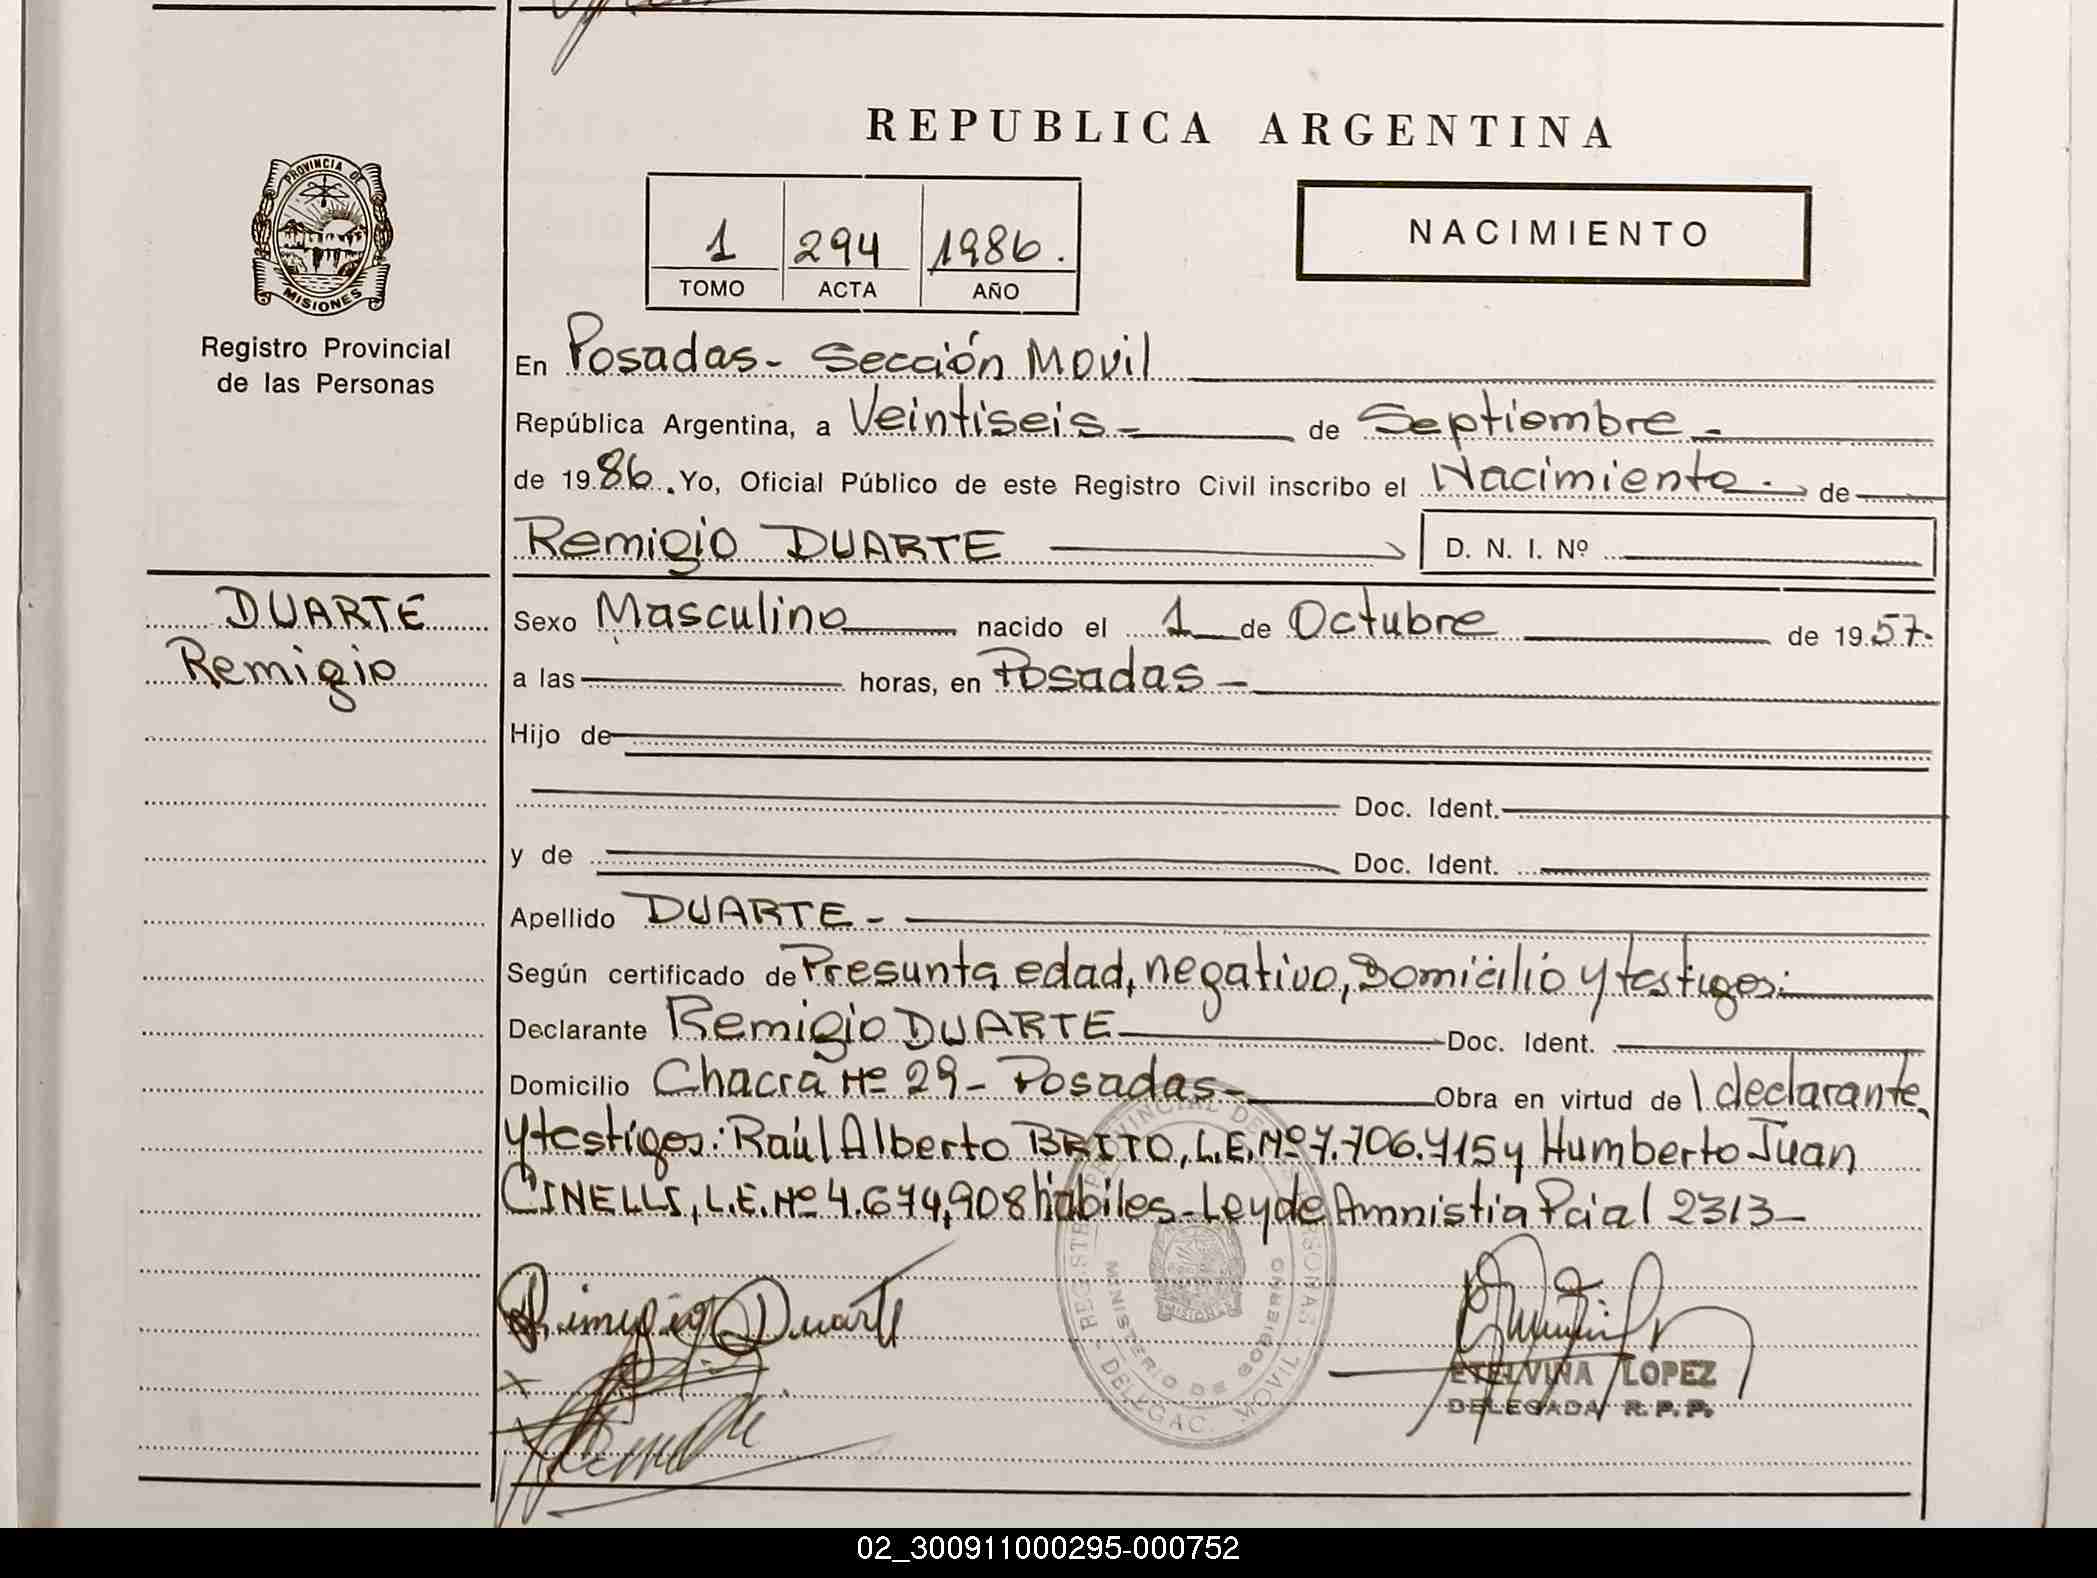 REPUBLICA ARGENTINA
PROVINCIA DE
MISIONES
Registro Provincial
de las Personas
1 294 1986.
TOMO ACTA AÑO
NACIMIENTO
En Posadas- Sección Movil
República Argentina, a Veintiseis- de Septiembre-
de 1986. Yo, Oficial Público de este Registro Civil inscribo el Nacimiento.- de
Remigio DUARTE D. N. I. Nº
DUARTE
Remigio
Sexo Masculino nacido el 1 de Octubre de 1957.
a las horas, en Posadas-
Hijo de
Doc. Ident.
y de Doc. Ident.
Apellido DUARTE-
Según certificado de Presunta edad, negativo, Domicilio y testigos:
Declarante Remigio DUARTE Doc. Ident.
Domicilio Chacra Nº 29- Posadas- Obra en virtud de l declarante
y testigos: Raúl Alberto BRITO, L.E.Nº 7.706.715 y Humberto Juan
CINELLI, L.E.Nº 4.674,908 hábiles-Ley de Amnistia Pcial 2313-
Remigio Duarte
REGISTRO PROVINCIAL DE LAS PERSONAS
MINISTERIO DE GOBIERNO
DELEGAC. MOVIL
MISIONES
ETELVINA LOPEZ
DELEGADA R. P. P.
02_300911000295-000752